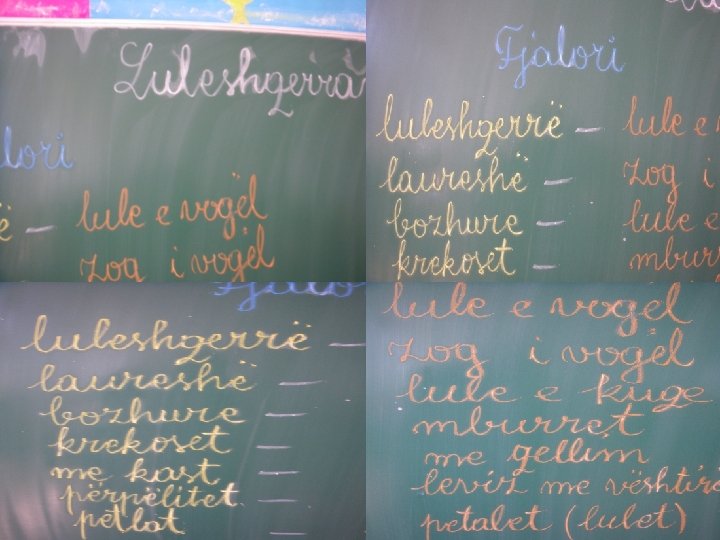 Luleshqerra
lori
ë – lule e vogël
zog i vogël
Fjalori
luleshqerrë – lule e
laureshë – zog i
bozhure – lule e
krekoset – mburr
Fjalo
luleshqerrë –
laureshë –
bozhure –
krekoset –
me kast –
përpëlitet –
petlat –
lule e vogël
zog i vogël
lule e kuqe
mburret
me qellim
leviz me vështir
petalet (lulet)